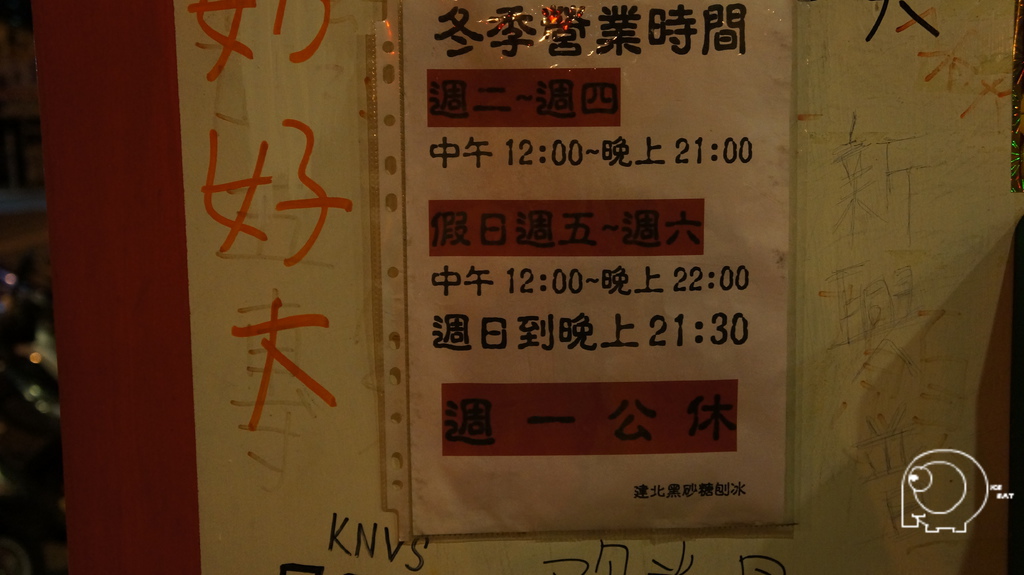 冬季營業時間
週二~週四
中午 12:00~晚上 21:00
假日週五~週六
中午 12:00~晚上 22:00
週日到晚上 21:30
週一公休
建北黑砂糖刨冰
好
好
大
KNVS
ICE
EAT